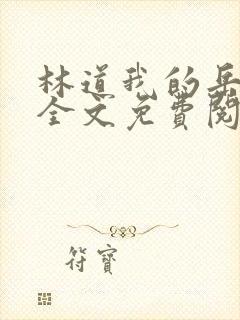 林道我的岳
全文免费阅
符寶